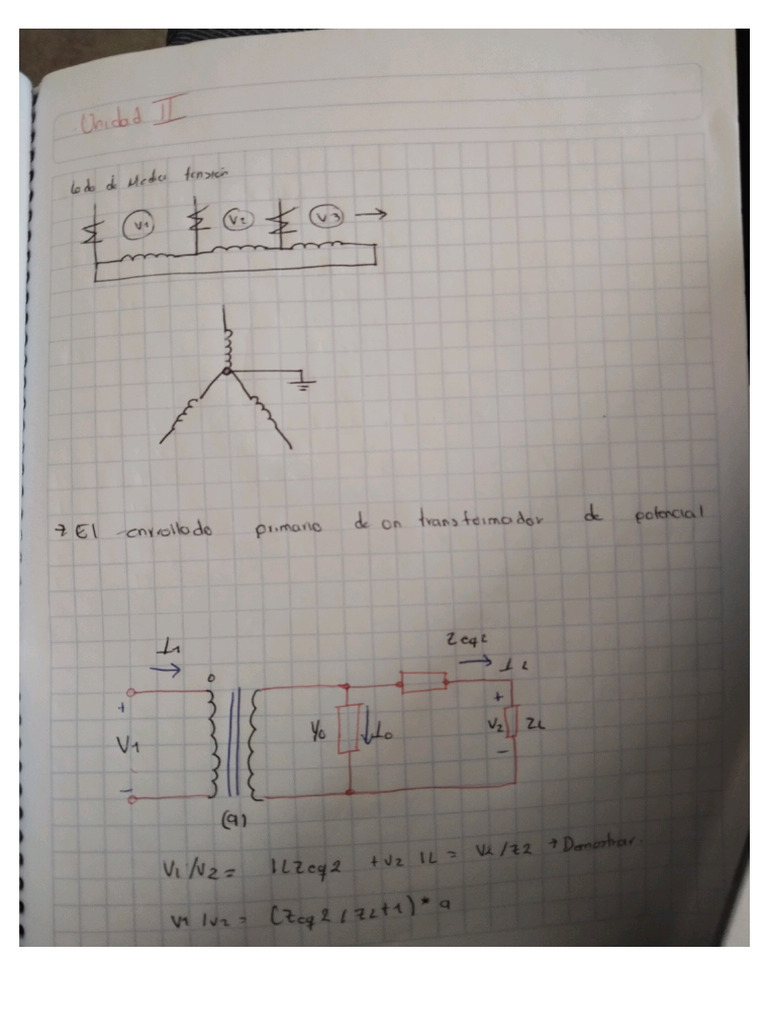 Unidad II
Lado de Media tensión
V1 V2 V3
7 El enrollado primario de un transformador de potencial
I1
Zeq2
I2
+ +
V1 Y0 Io V2 ZL
- -
(a)
V1/V2 = ILZeq2 + V2 IL = V2/Z2 → Demostrar.
V1/V2 = (Zeq2/ZL+1)* a